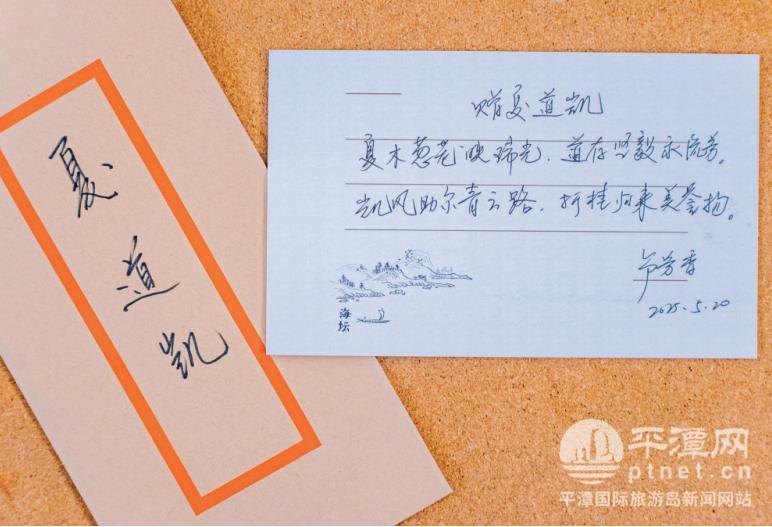 夏道凯
赠夏道凯
夏木葱茏映瑞光，道存坚毅永流芳。
凯风助尔青云路，折桂归来美誉扬。
2025.5.20
海坛
平潭网
ptnet.cn
平潭国际旅游岛新闻网站